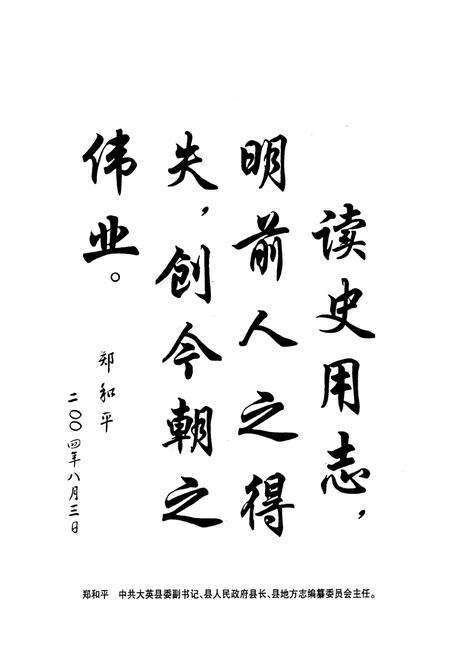 读史用志，
明前人之得
失，创今朝之
伟业。
郑和平
二〇〇四年八月三日
郑和平　中共大英县委副书记、县人民政府县长、县地方志编纂委员会主任。